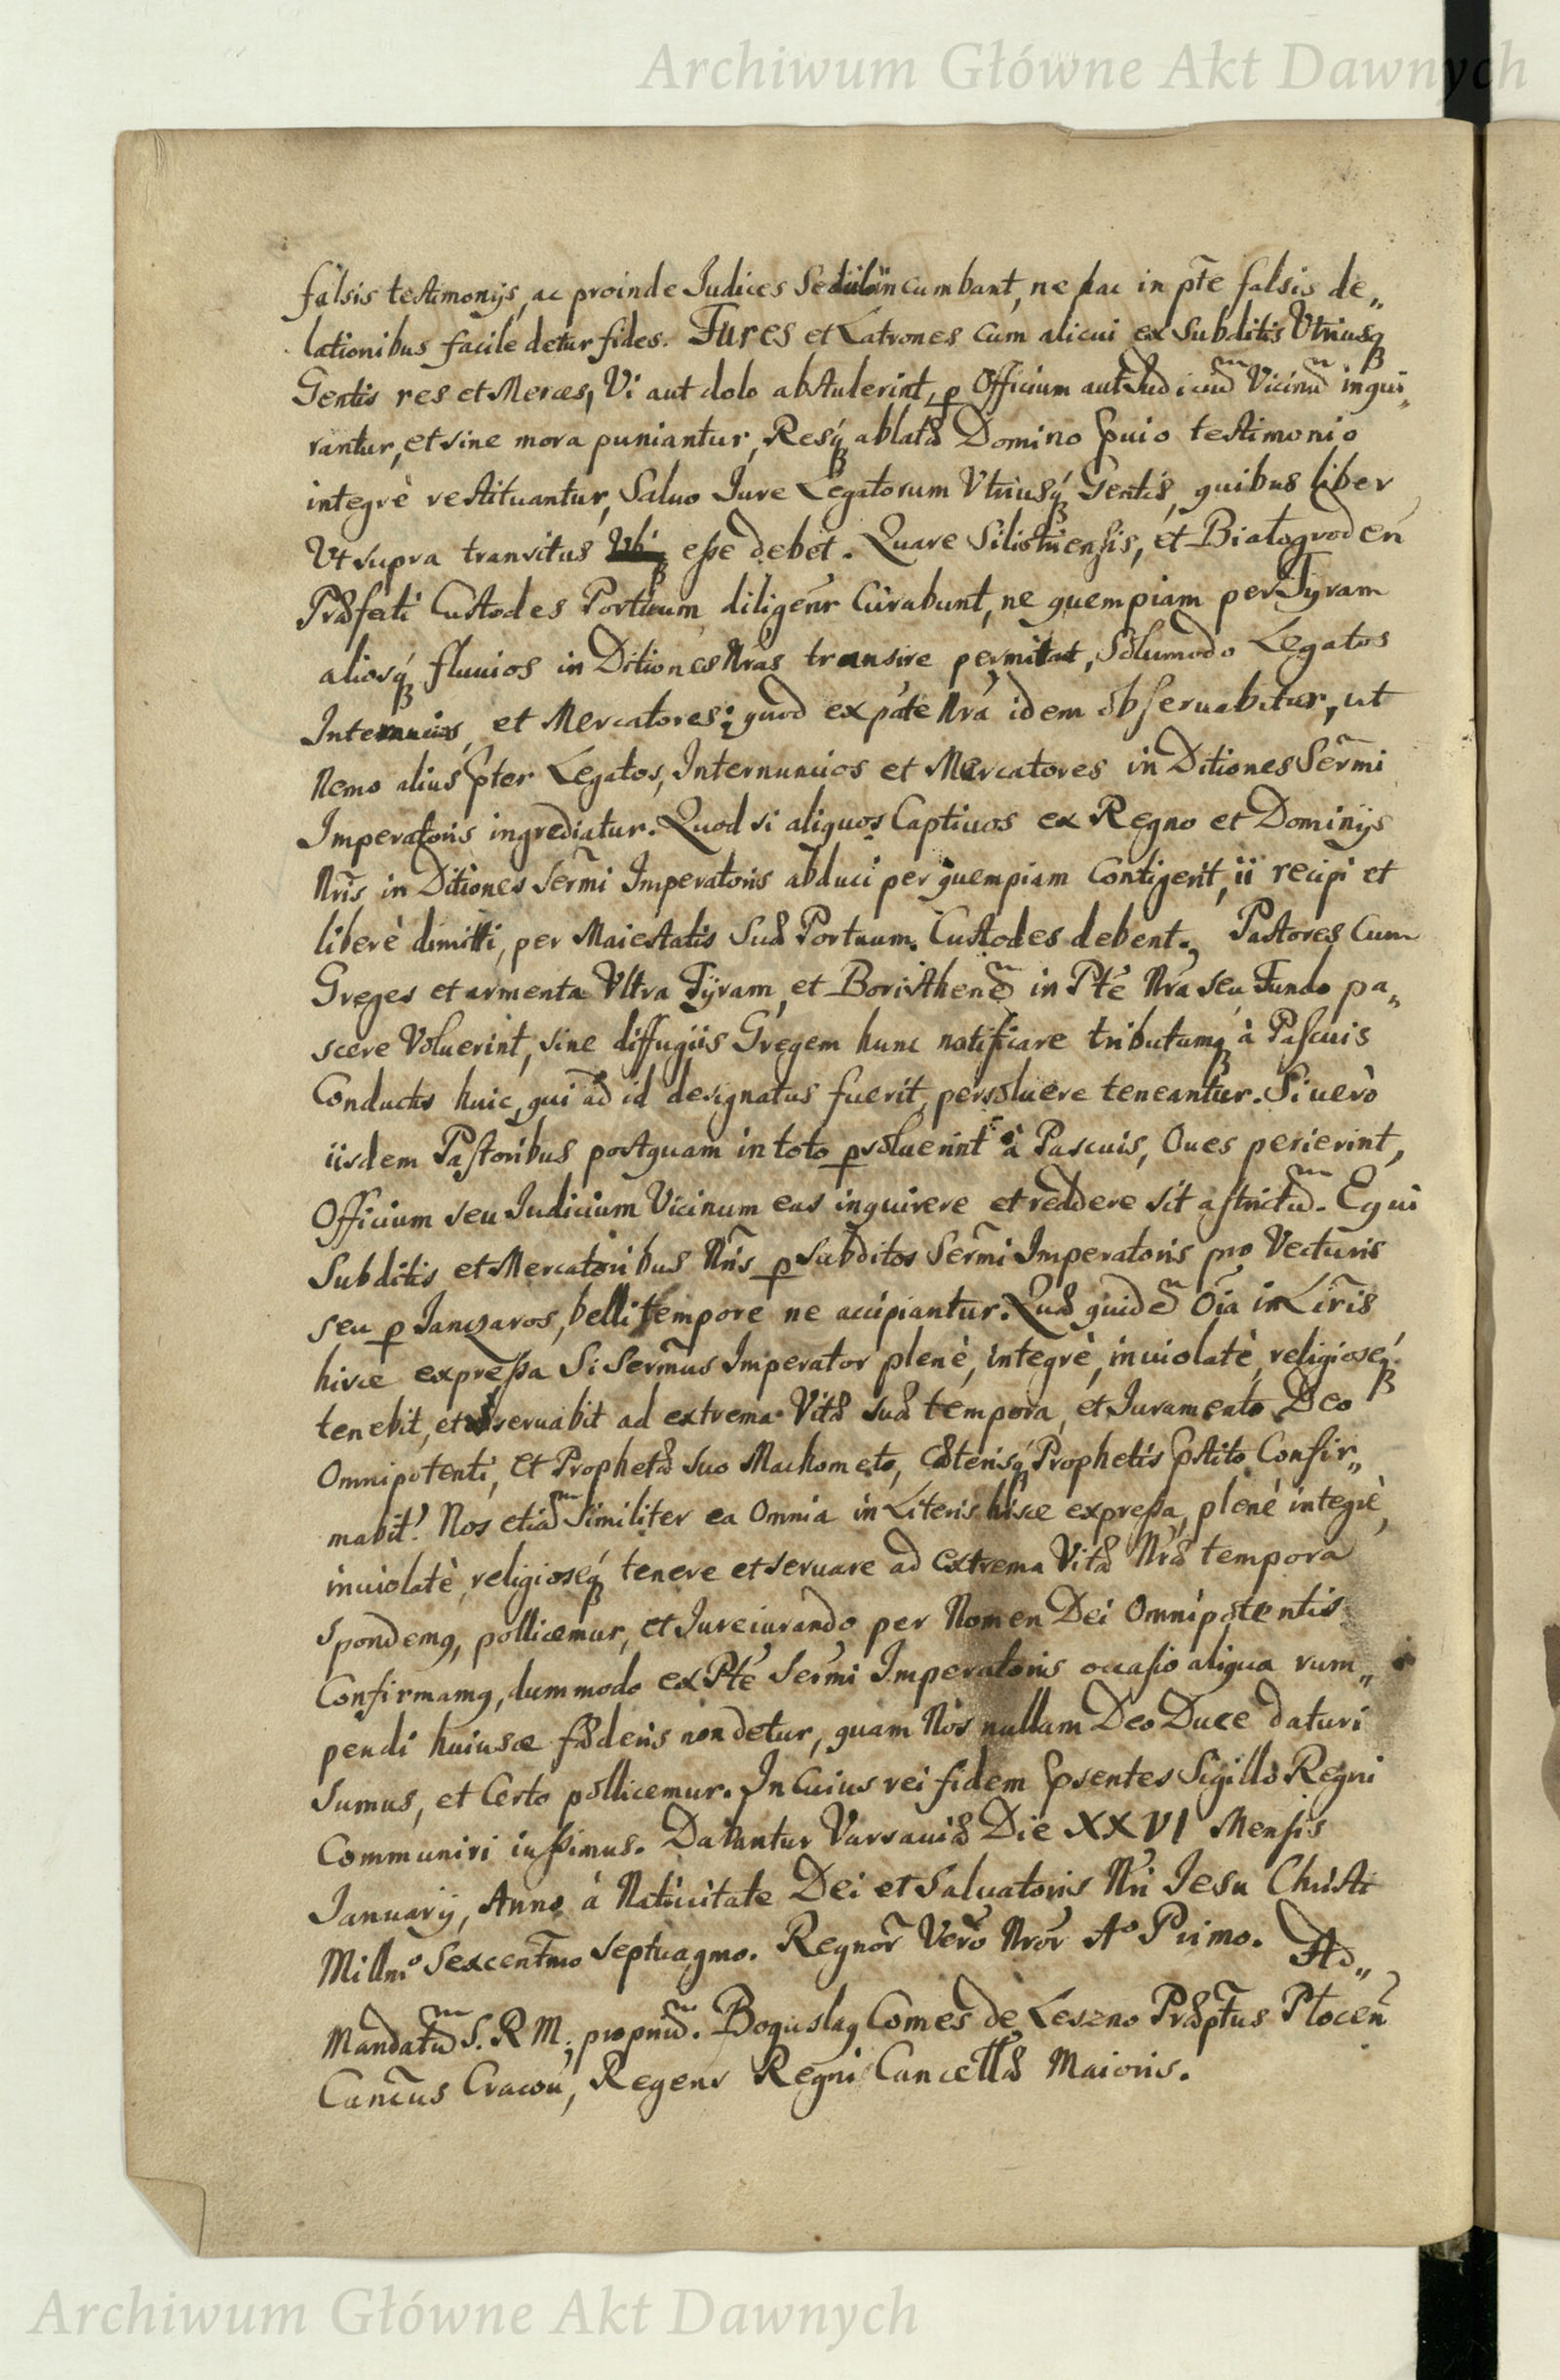 Archiwum Główne Akt Dawnych
falsis testimonijs, ac proinde Iudices Sedulo incumbant, ne hac in pte falsis de„
lationibus facile detur fides. Fures et Latrones cum alicui ex Subditis Vtriusq
Gentis res et Merces, Vi aut dolo abstulerint, p Officium aut Iudiciũ Vicinũ inqui„
rantur, et sine mora puniantur, Resq́ ablatæ Domino spuio testimonio
integrè restituantur, Saluo Iure Legatorum Vtriusq́ Gentis, quibus liber
Vt supra transitus eße debet. Quare Silistriensis, et Białogroden̄
Præfecti Custodes Portuum diligent̄r Curabunt, ne quempiam per Tyram
aliosq́ fluuios in Ditiones Nras transire permittat, Solumodo Legatos
Internuncios, et Mercatores: quod ex páte Nrá idem obseruabitur, ut
Nemo alius p̃ter Legatos, Internuncios et Mercatores in Ditiones Ser̃mi
Imperatoris ingrediatur. Quod si aliquos Captiuos ex Regno et Dominijs
Nr̃is in Ditiones Ser̃mi Imperatoris abduci per quempiam Contigerit, ii recipi et
liberè dimitti, per Maiestatis Suæ Portuum Custodes debent. Pastores Cum
Greges et armenta Vltra Tÿram, et Boristhenẽ in Pte Nra seu Fundo pa„
scere Voluerint, sine diffugiis Gregem hunc notificare tributumq à Pascuis
Conductis huic, qui ad id designatus fuerit, persoluere teneantur. Si uerò
iisdem Pastoribus postquam in toto psoluerint à Pascuis, Oues perierint,
Officium seu Iudicium Vicinum eas inquirere et reddere sit astrictũ. Equi
Subditis et Mercatoribus Nr̃is p subditos Ser̃mi Imperatoris pro Vecturis
seu p Ianczaros, belli tempore ne accipiantur. Quæ quidẽ Oĩa in Lr̃is
hisce expreßa Si Ser̃mus Imperator plenè, integrè, inuiolatè, religioseq́
tenebit, et obseruabit ad extrema Vitæ suæ tempora, et Iuramento Deo
Omnipotenti, et Prophetæ suo Machometo, Cæterisq́ Prophetis p̃stito Confir„
mabit. Nos etiã Similiter ea Omnia in Literis hisce expreßa, plenè integrè,
inuiolatè, religioseq́ tenere et seruare ad extrema Vitæ Nræ tempora
spondemq, pollicemur, et Iureiurando per Nomen Dei Omnipotentis
Confirmamq, dummodo ex Pte Ser̃mi Imperatoris occasio aliqua rum„
pendi huiusce fæderis non detur, quam Nos nullam Deo Duce daturi
Sumus, et Certo pollicemur. In Cuius rei fidem p̃sentes Sigillo Regni
Communiri iußimus. Dabantur Varsauiæ Die XXVI Mensis
Ianuarij, Anno à Natiuitate Dei et Saluatoris Nri Iesu Christi
Mill̃mo Sexcent̃mo septuagmo. Regnor̃ Verò Nror̃ Aº Primo. Ad„
Mandatũ S. R M; propriũ. Boguslaq Comes de Leszno Præp̃tus Płocen̄
Canc̃us Cracou, Regens Regni Cancellæ Maioris.
Archiwum Główne Akt Dawnych